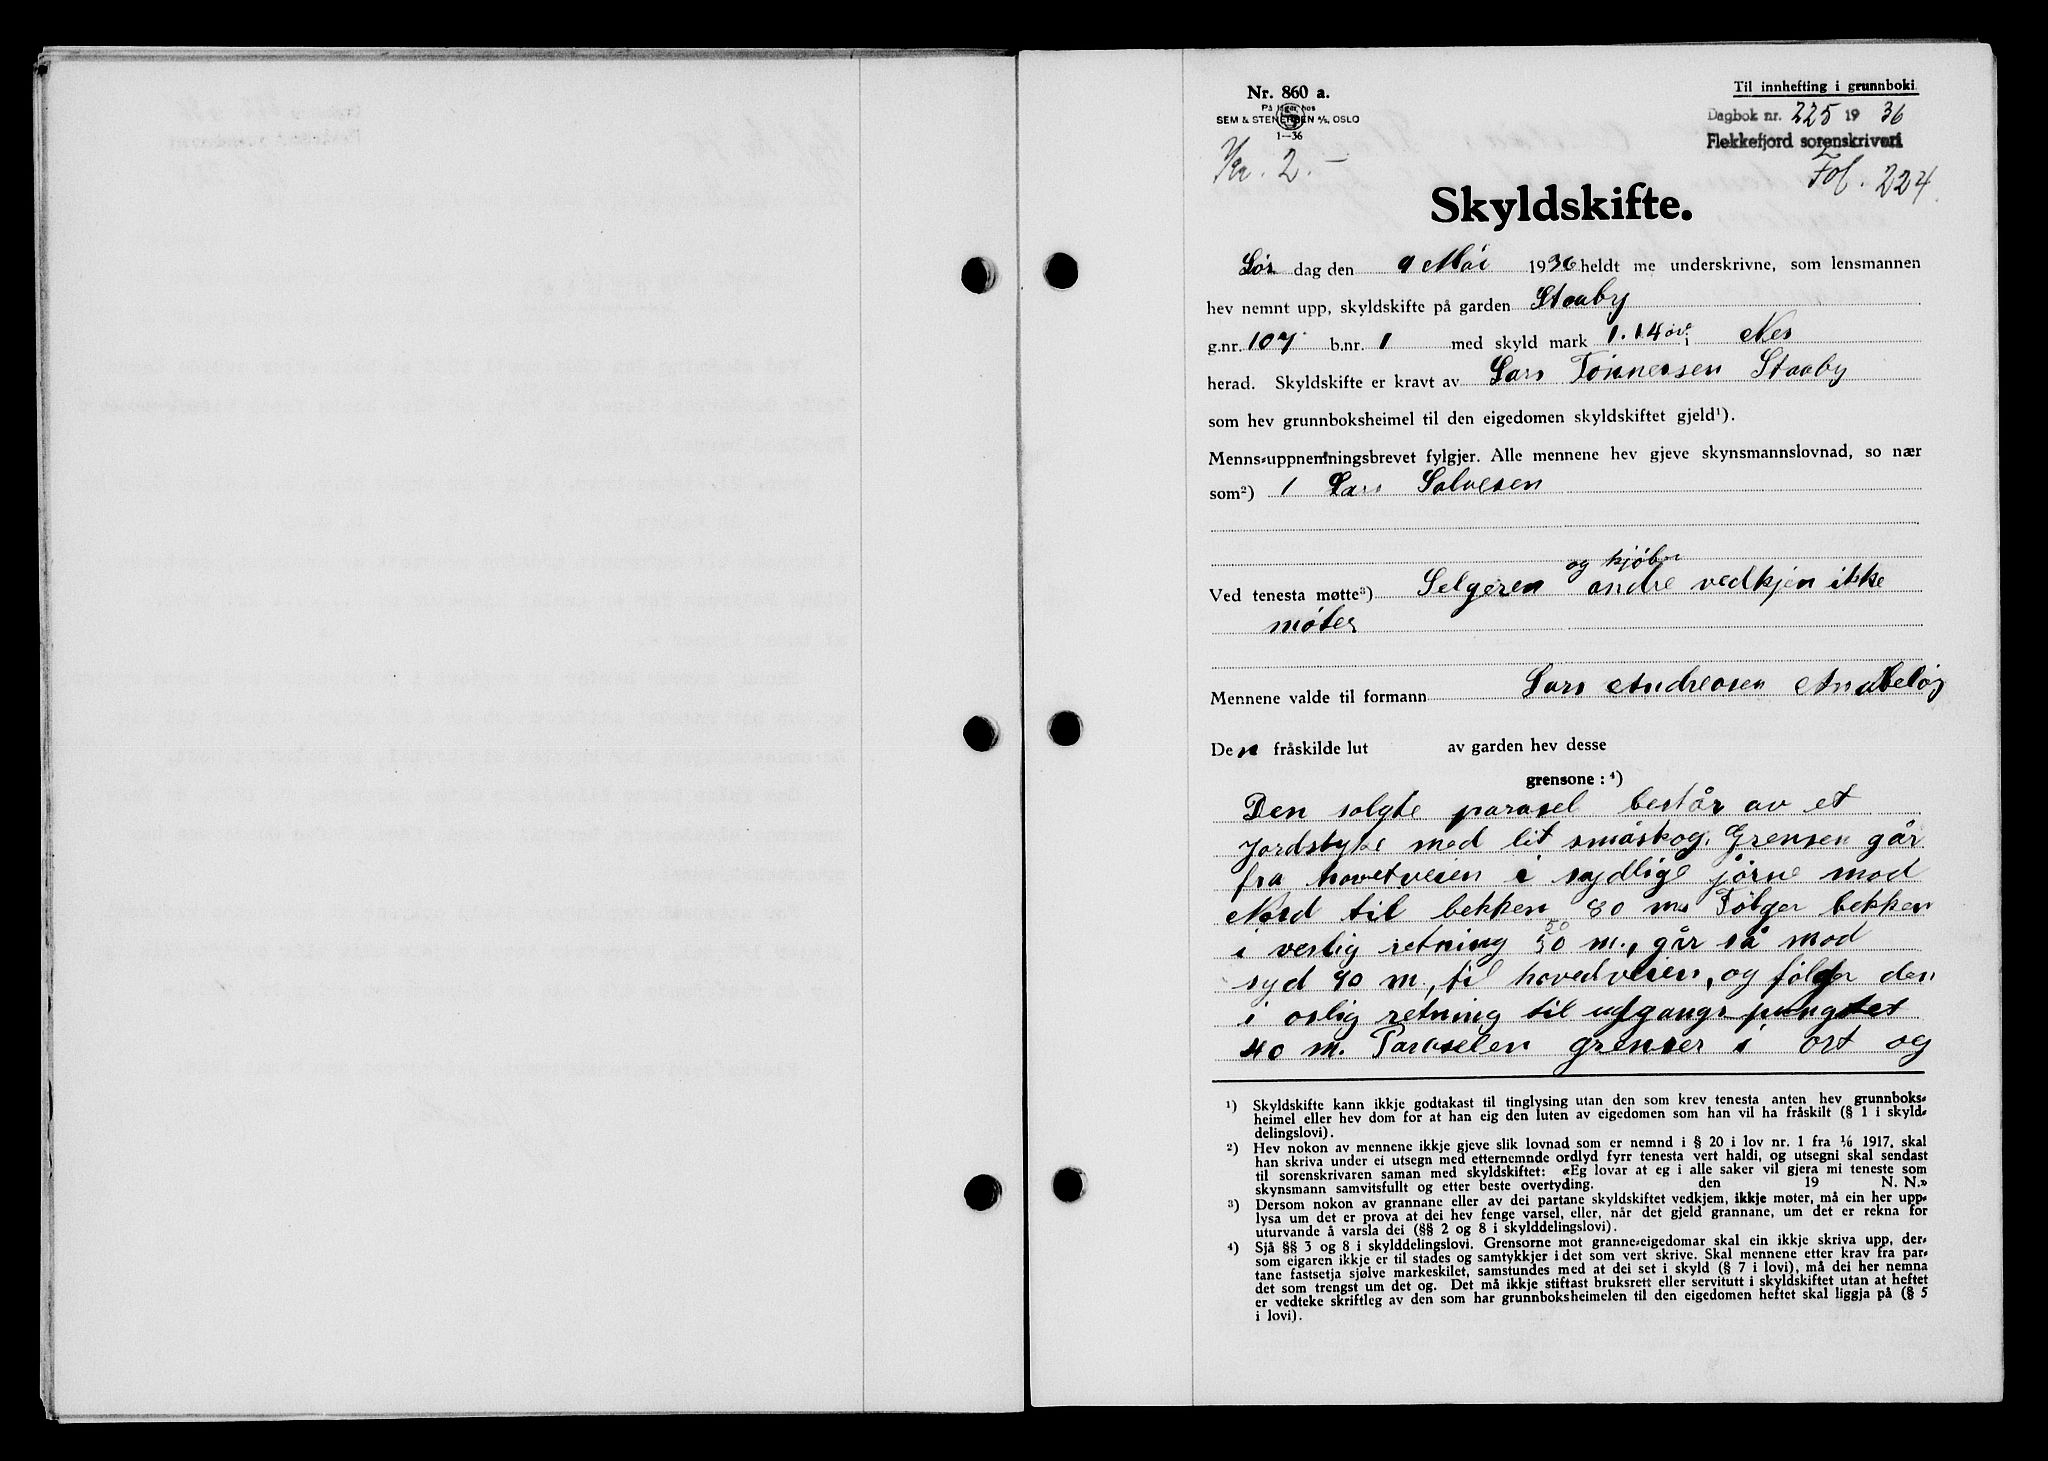 Nr. 860 a.
På lager hos
SEM & STENERSEN A/S, OSLO
1—36
Til innhefting i grunnboki
Dagbok nr. 225 1936
Flekkefjord sorenskriveri
Kr. 2.-
Fol. 224.
Skyldskifte.
Lør dag den 9 Mai 1936 heldt me underskrivne, som lensmannen
hev nemnt upp, skyldskifte på garden Staaby
g.nr. 107 b.nr. 1 med skyld mark 1.14 øre i Nes
herad. Skyldskifte er kravt av Lars Tønnessen Staaby
som hev grunnboksheimel til den eigedomen skyldskiftet gjeld¹).
Menns-uppnemningsbrevet fylgjer. Alle mennene hev gjeve skynsmannslovnad, so nær
som²) 1 Lars Salvesen
og kjøber
Ved tenesta møtte³) Selgeren andre vedkjen ikke
møter
Mennene valde til formann Lars Andreasen Anabeløy
Den fråskilde lut av garden hev desse
grensone: ⁴)
Den solgte parasel består av et
Jordstyke med lit småskog. Grensen går
fra hovetveien i sydlige jørne mod
Nord til bekken 80 m. Følger bekken
50
i vestig retning 50 m., går så mod
syd 90 m., til hovedveien, og følger den
i ostig retning til udgangspungtet
40 m. Paraselen grenser i ort og
¹) Skyldskifte kann ikkje godtakast til tinglysing utan den som krev tenesta anten hev grunnboks-
heimel eller hev dom for at han eig den luten av eigedomen som han vil ha fråskilt (§ 1 i skyld-
delingslovi).
²) Hev nokon av mennene ikkje gjeve slik lovnad som er nemnd i § 20 i lov nr. 1 fra 1/6 1917, skal
han skriva under ei utsegn med etternemnde ordlyd fyrr tenesta vert haldi, og utsegni skal sendast
til sorenskrivaren saman med skyldskiftet: «Eg lovar at eg i alle saker vil gjera mi teneste som
skynsmann samvitsfullt og etter beste overtyding. den 19 N. N.»
³) Dersom nokon av grannane eller av dei partane skyldskiftet vedkjem, ikkje møter, må ein her upp-
lysa um det er prova at dei hev fenge varsel, eller, når det gjeld grannane, um det er rekna for
uturvande å varsla dei (§§ 2 og 8 i skylddelingslovi).
⁴) Sjå §§ 3 og 8 i skylddelingslovi. Grensorne mot granne-eigedomar skal ein ikkje skriva upp, der-
som eigaren ikkje er til stades og samtykkjer i det som vert skrive. Skal mennene etter krav fra par-
tane fastsetja sjølve markeskilet, samstundes med at dei set i skyld (§ 7 i lovi), må dei her nemna
det som trengst um det og. Det må ikkje stiftast bruksrett eller servitutt i skyldskiftet utan at heftet
er vedteke skriftleg av den som har grunnboksheimelen til den eigedomen heftet skal liggja på (§ 5
i lovi).